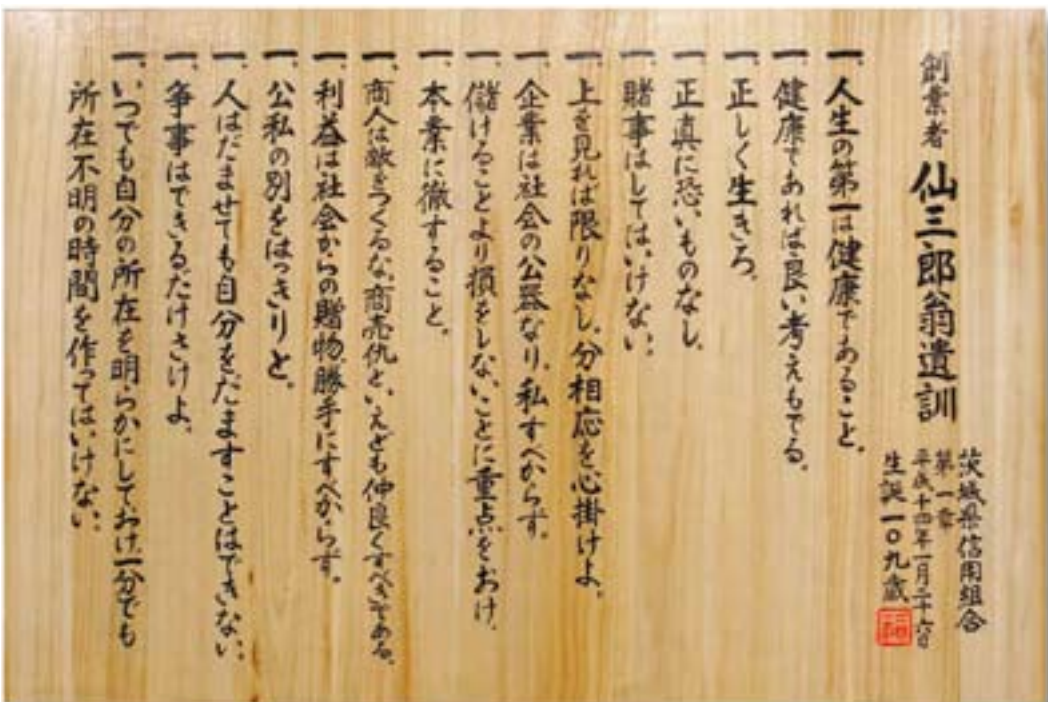 創業者 仙三郎翁遺訓
茨城県信用組合
第一章
平成十四年一月二十六日
生誕一〇九歳
一、人生の第一は健康であること。
一、健康であれば良い考えもでる。
一、正しく生きろ。
一、正真に恐いものなし。
一、賭事はしてはいけない。
一、上を見れば限りなし。分相応を心掛けよ。
一、企業は社会の公器なり。私すべからず。
一、儲けることより損をしないことに重点をおけ。
一、本業に徹すること。
一、商人は敵をつくるな。商売仇といえども仲良くすべきである。
一、利益は社会からの贈物。勝手にすべからず。
一、公私の別をはっきりと。
一、人はだませても自分をだますことはできない。
一、争事はできるだけさけよ。
一、いつでも自分の所在を明らかにしておけ。一分でも
所在不明の時間を作ってはいけない。